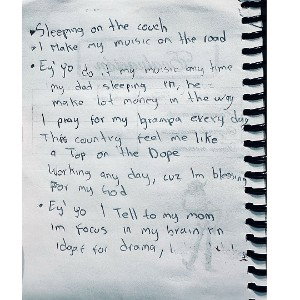 Sleeping on the couch
I Make my muisic on the road
Ey' yo do it my music any time
my dad sleeping rn, he
make lot money in the way
I pray for my grampa every day
This country feel me like
a Top on the Dope
Working any day, cuz Im blessing
For my God
Ey' yo I Tell to my mom
Im Focus in my brain, rn
idope for drama, I